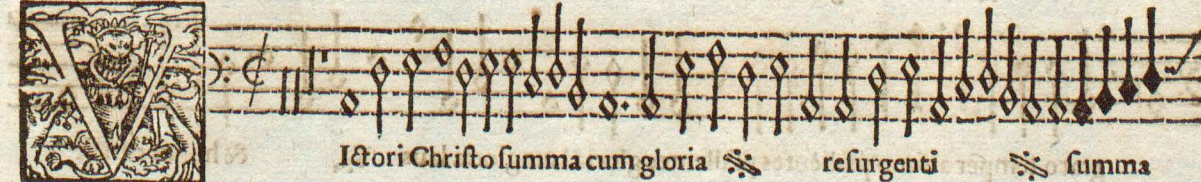 VIctori Christo summa cum gloria ։//։ resurgenti ։//։ summa